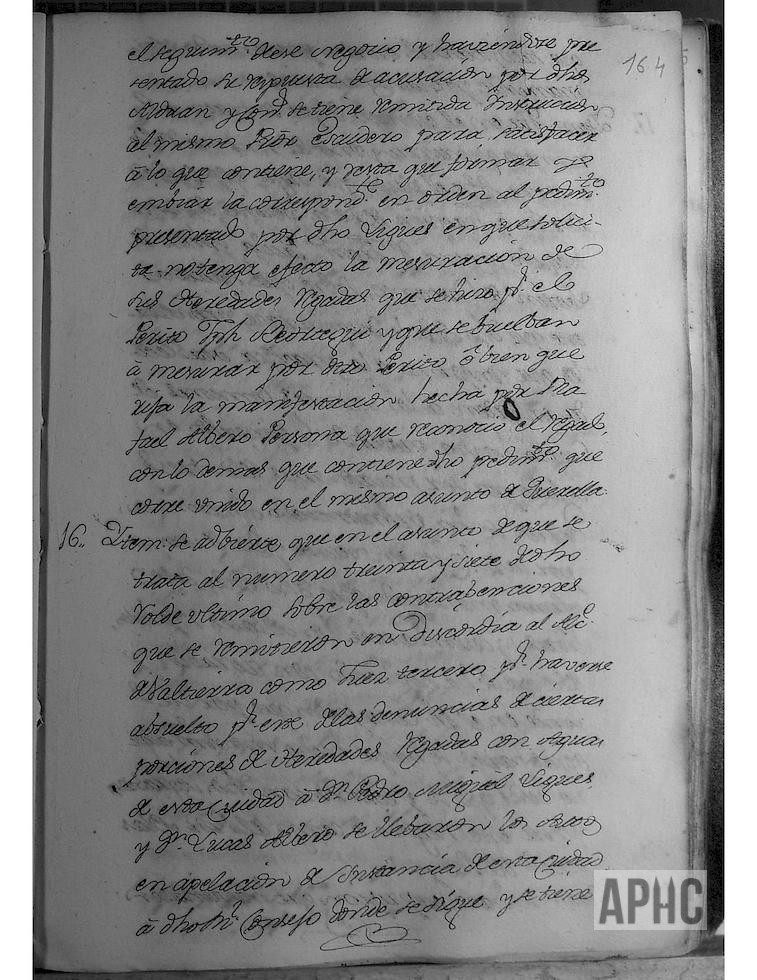 164
el seguim.to de ese negocio y haviendose pre
sentado su respuesta de acusación por dho
Alduan y Con.s se tiene remitida Instrucción
al mismo Prõr Escudero para satisfacer
à lo que contiene, y resta que formar y
embiar la correspond.te en orden al pedim.to
presentado por dho Ligues en que solici-
ta no tenga efecto la mesuración de
sus Heredades Regadas que se hizo p.r el
Perito Jph y que se buelban
à mesurar por otro Perito ò bien que
rija la manifestación hecha por Ra
fael Albero Persona que reconoció el Regad.o
con lo demas que contiene dho pedim.to que
corre unido en el mismo asunto de Querella
16. Ytem: se adbierte que en el asunto de que se
trata al numero treinta y siete de dho
Rolde ultimo sobre las contrabenciones
que se remitieron en Discordia al Alc.e
de Valtierra como Juez tercero p.r haverse
absuelto p.r ese de las denuncias de ciertas
porciones de Heredades Regadas con Agua
de esta Ciudad à D.n Pedro Miguel Ligues
y D.n Lucas Albero se llebaron los Autos
en apelación de Instancia de esta Ciudad
à dho R.l Consejo donde se sigue y se tiene
APHC